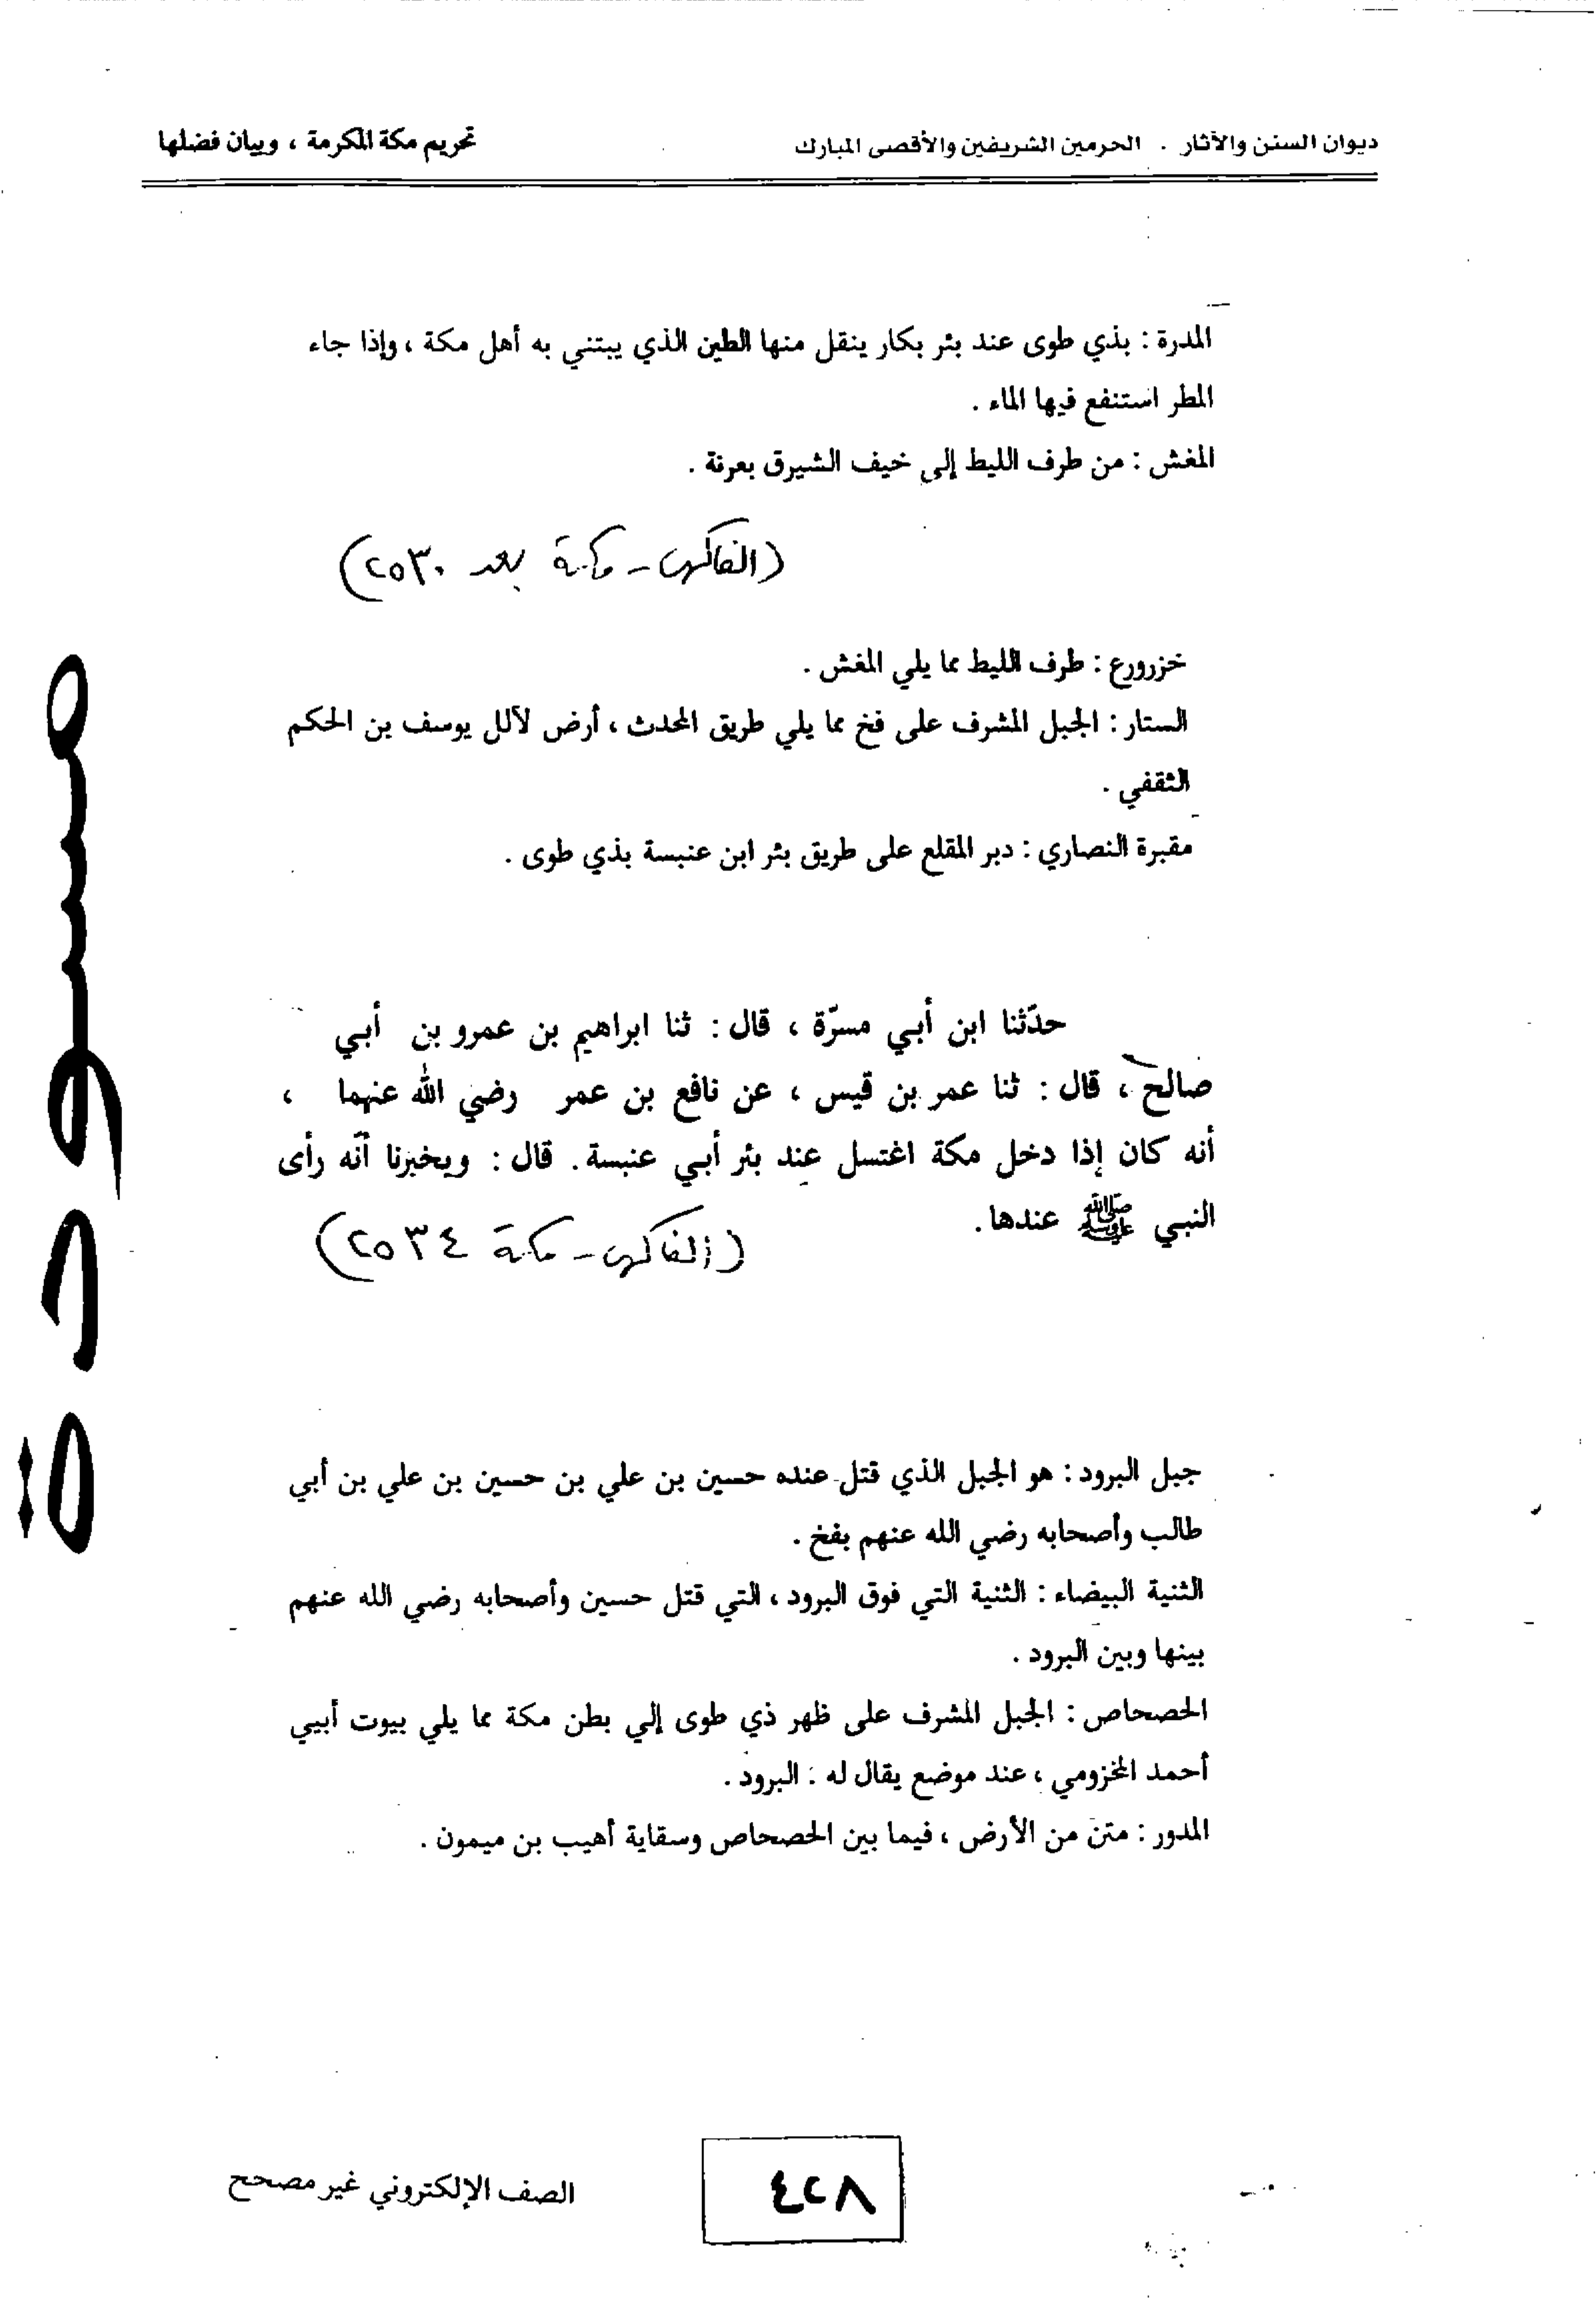 ديوان السنن والآثار . الحرمين الشريفين والأقصى المبارك
تحريم مكة المكرمة ، وبيان فضلها
المدرة : بذي طوى عند بئر بكار ينقل منها الطين الذي يبتني به أهل مكة ، وإذا جاء
المطر استنفع فيها الماء .
المغش : من طرف الليط إلى خيف الشيرق بعرنة .
(الفاكهي - مكة بعد ٢٥٣٠)
خزرورع : طرف الليط مما يلي المغش .
الستار : الجبل المشرف على فخ مما يلي طريق المحدث ، أرض لآلل يوسف بن الحكم
الثقفي .
مقبرة النصاري : دبر المقلع على طريق بئر ابن عنبسة بذي طوى .
حدّثنا ابن أبي مسرّة ، قال : ثنا ابراهيم بن عمرو بن أبي
صالح ، قال : ثنا عمر بن قيس ، عن نافع بن عمر رضي الله عنهما ،
أنه كان إذا دخل مكة اغتسل عند بئر أبي عنبسة. قال : ويخبرنا أنّه رأى
النبي ﷺ عندها.
(الفاكهي - مكة ٢٥٣٤)
جبل البرود : هو الجبل الذي قتل عنده حسين بن علي بن حسين بن علي بن أبي
طالب وأصحابه رضي الله عنهم بفخ .
الثنية البيضاء : الثنية التي فوق البرود ، التي قتل حسين وأصحابه رضي الله عنهم
بينها وبين البرود .
الحصحاص : الجبل المشرف على ظهر ذي طوى إلي بطن مكة مما يلي بيوت أبيي
أحمد المخزومي ، عند موضع يقال له : البرود .
المدور : متن من الأرض ، فيما بين الحصحاص وسقاية أهيب بن ميمون .
مسودة
٤٢٨
الصف الإلكتروني غير مصحح